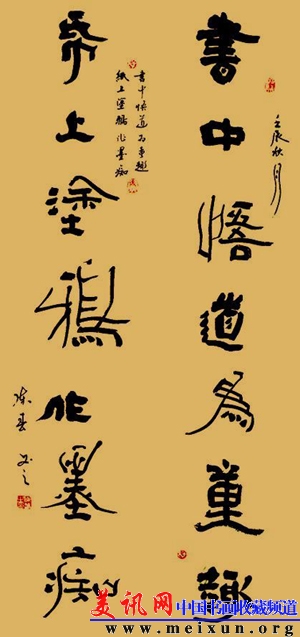 壬辰秋月
書中悟道為童趣
书中悟道为童趣
紙上塗鴉作墨痴
帋上塗鴉作墨痴
美讯网 中国书画收藏频道
www.meixun.org